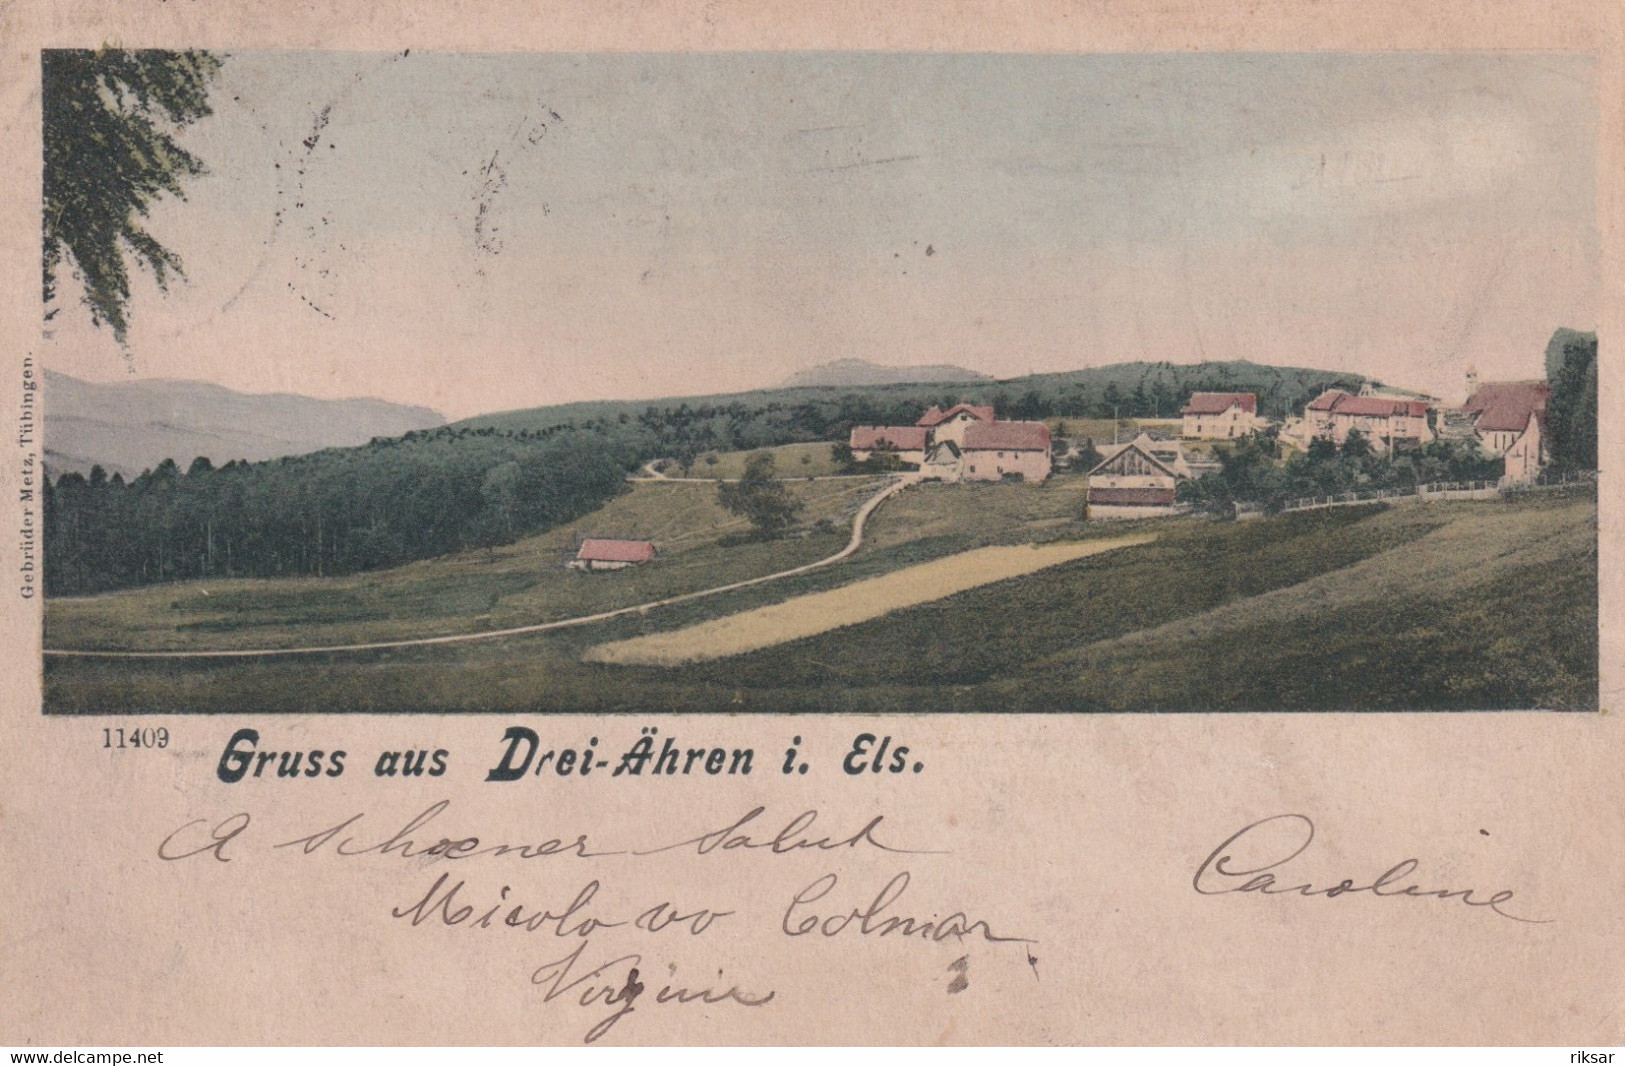 Gebrüder Metz, Tübingen.
11409
Gruss aus Drei-Ähren i. Els.
A Schoener Salut
Caroline
Micolo vo Colmar
Virginie
www.delcampe.net
riksar